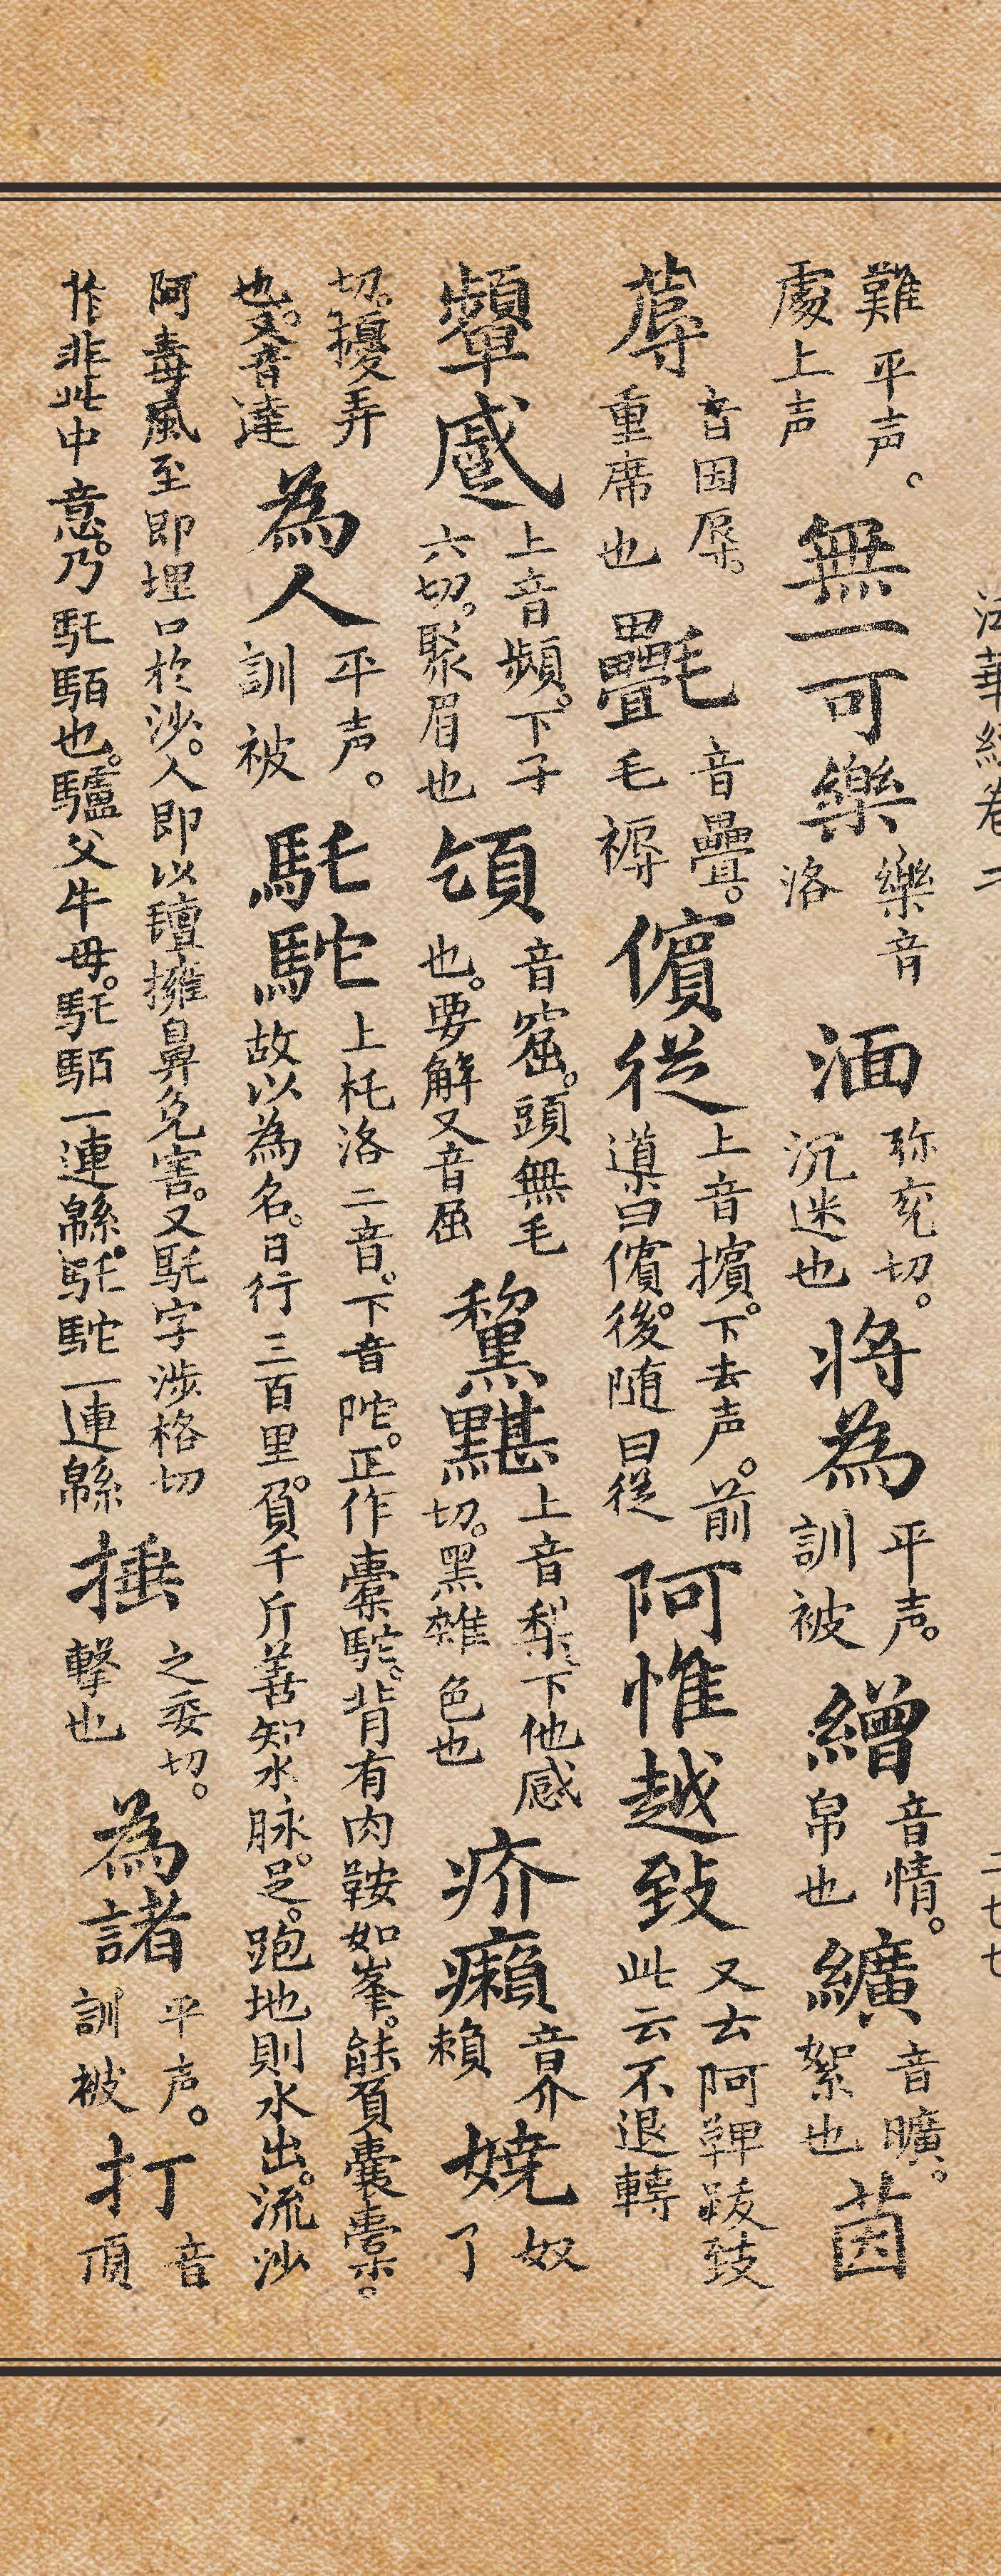 法華經卷二 二七七
難平声。處上声 無一可樂 樂音洛 湎 弥兖切。沉迷也 将為 平声。訓被 繒 音情。帛也 纊 音曠。絮也 茵
蓐 音因辱。重席也 㲲 音疊。毛褥 儐従 上音擯。下去声。前導曰儐。後随曰従 阿惟越致 又云阿鞞跋致此云不退轉
顰蹙 上音頻。下子六切。聚眉也 頜 音窟。頭無毛也。要解又音屈 黧黮 上音梨。下他感切。黑雜色也 疥癩 音界賴 嬈 奴了
切。擾弄也。又音達 為人 平声。訓被 馲駝 上托洛二音。下音陀。正作橐駝。背有肉鞍如峯。能負囊橐。故以為名。日行三百里。負千斤善知水脉。足。跑地則水出。流沙
阿毒風至即埋口於沙。人即以氊擁鼻免害。又馲字涉格切作非此中意。乃馲駞也。驢父牛母。馲䭦一連緜。馲駝一連緜 捶 之委切。擊也 為諸 平声。訓被 打 音頂